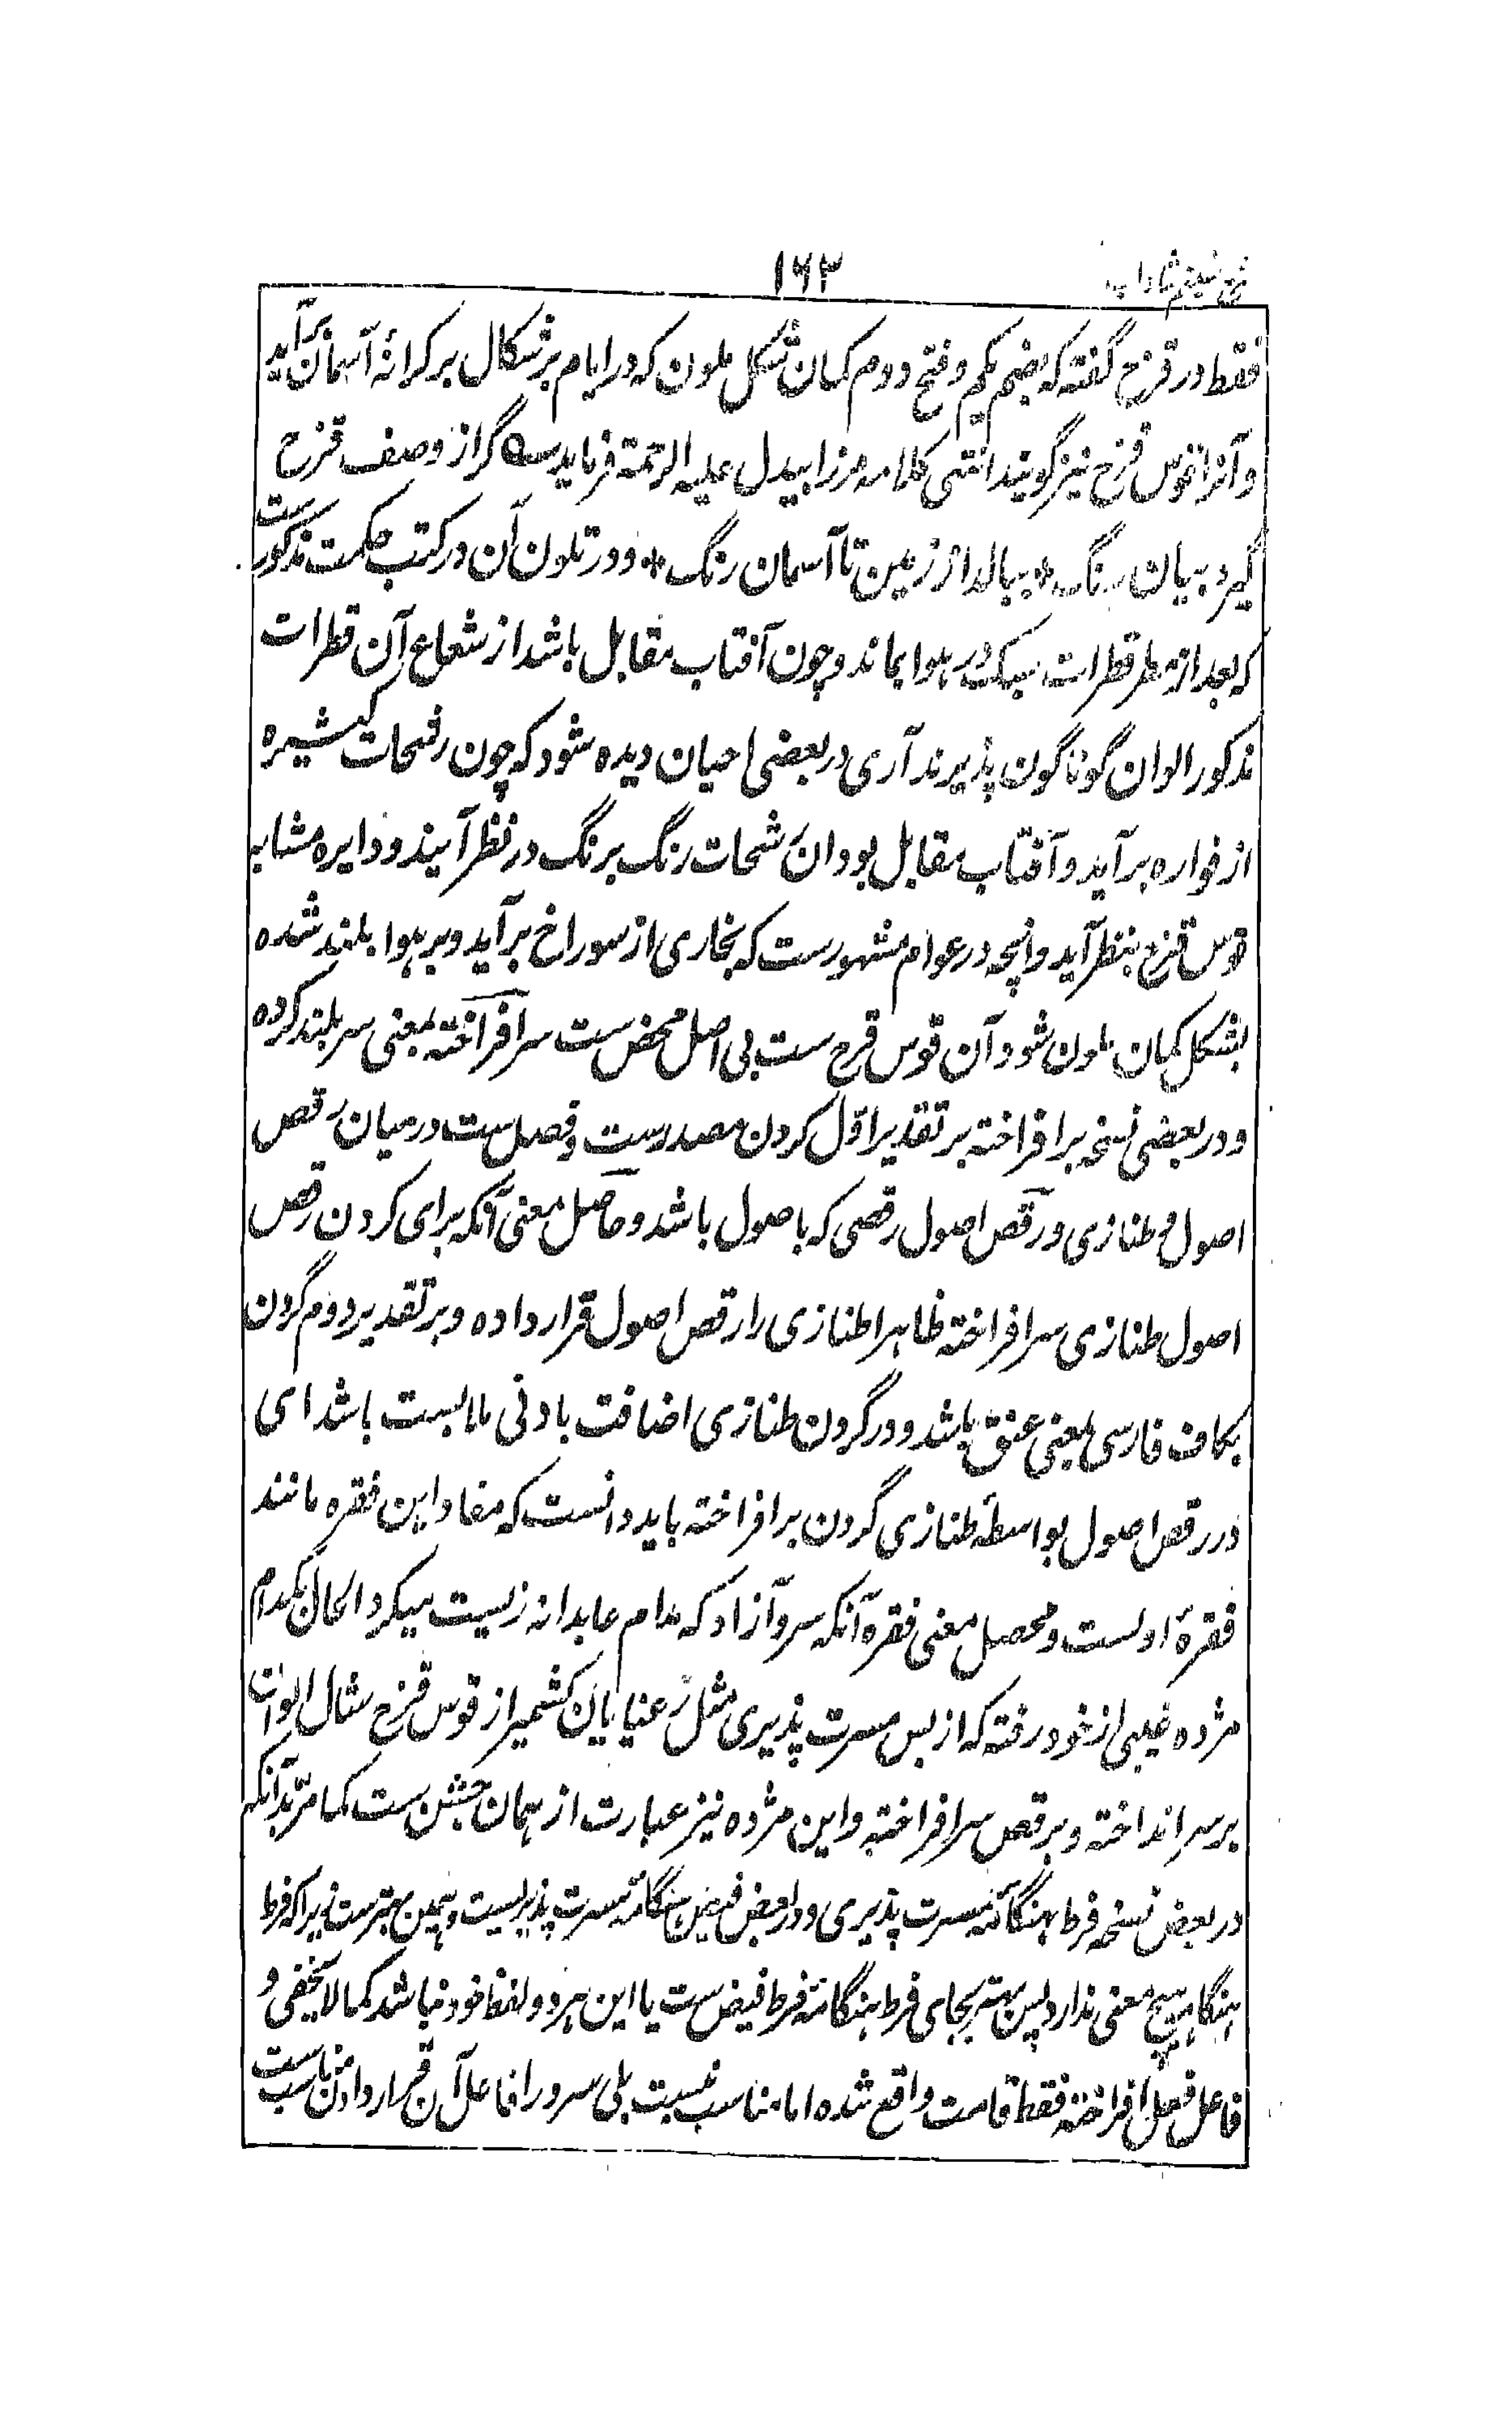 ۱۶۲
فقط در قزح گفته که بضم یکم و فتح دوم کمان شکل ملون که در ایام برشکال بر کرانهٔ آسمان برآید
و آنرا قوس قزح نیز گویند انتهی کلامه مرزا بیدل علیه الرحمة فرماید گر از وصف قزح
گیرد بیان رنگ * ببالد از زمین تا آسمان رنگ * و در تلون آن در کتب حکمت مذکورست
که بعد از مطر قطرات سبک در هوا بماند و چون آفتاب مقابل باشد از شعاع آن قطرات
مذکور الوان گوناگون پذیرند آری در بعضی احیان دیده شود که چون رشحات کثیره
از فواره برآید و آفتاب مقابل بود آن رشحات رنگ برنگ در نظر آیند و دایره مشابه
قوس قزح بنظر آید و آنچه در عوام مشهورست که بخاری از سوراخ برآید و بر هوا بلند شده
بشکل کمان ملون شود آن قوس قزح ست بی اصل محض ست سر افراخته بمعنی سر بلند کرده
و در بعضی نسخه بر افراخته بر تقدیر اول کردن مصدرست و فصل ست در میان رقص
اصول و طنازی و رقص اصول رقصی که باصول باشد و حاصل معنی آنکه برای کردن رقص
اصول طنازی سر افراخته ظاهرا طنازی را رقص اصول قرار داده و بر تقدیر دوم گردن
بکاف فارسی بمعنی عنق باشد و در گردن طنازی اضافت بادنی ملابست باشد ای
در رقص اصول بواسطهٔ طنازی گردن بر افراخته باید دانست که مفاد این فقره مانند
فقرهٔ اولست و محصل معنی فقره آنکه سرو آزاد که مدام عابدانه زیست میکرد الحال بکدام
مژده غیبی از خود رفته که از بس مسرت پذیری مثل رعنایان کشمیر از قوس قزح شال الوان
بر سر انداخته و برقص سر افراخته و این مژده نیز عبارت از همان جشن ست کما مر بدآنکه
در بعض نسخه فرط هنگامهٔ مسرت پذیری و در بعض فیض هنگامهٔ مسرت پذیریست و همین بهترست زیرا که فرط
هنگامه هیچ معنی ندارد پس بهتر بجای فرط هنگامه فرط فیض ست یا این هر دو لفظ خود نباشد کما لا یخفی و
فاعل فعل افراخته فقط قامت واقع شده اما مناسب نیست بلی سرو را فاعل آن قرار دادن مناسب ست